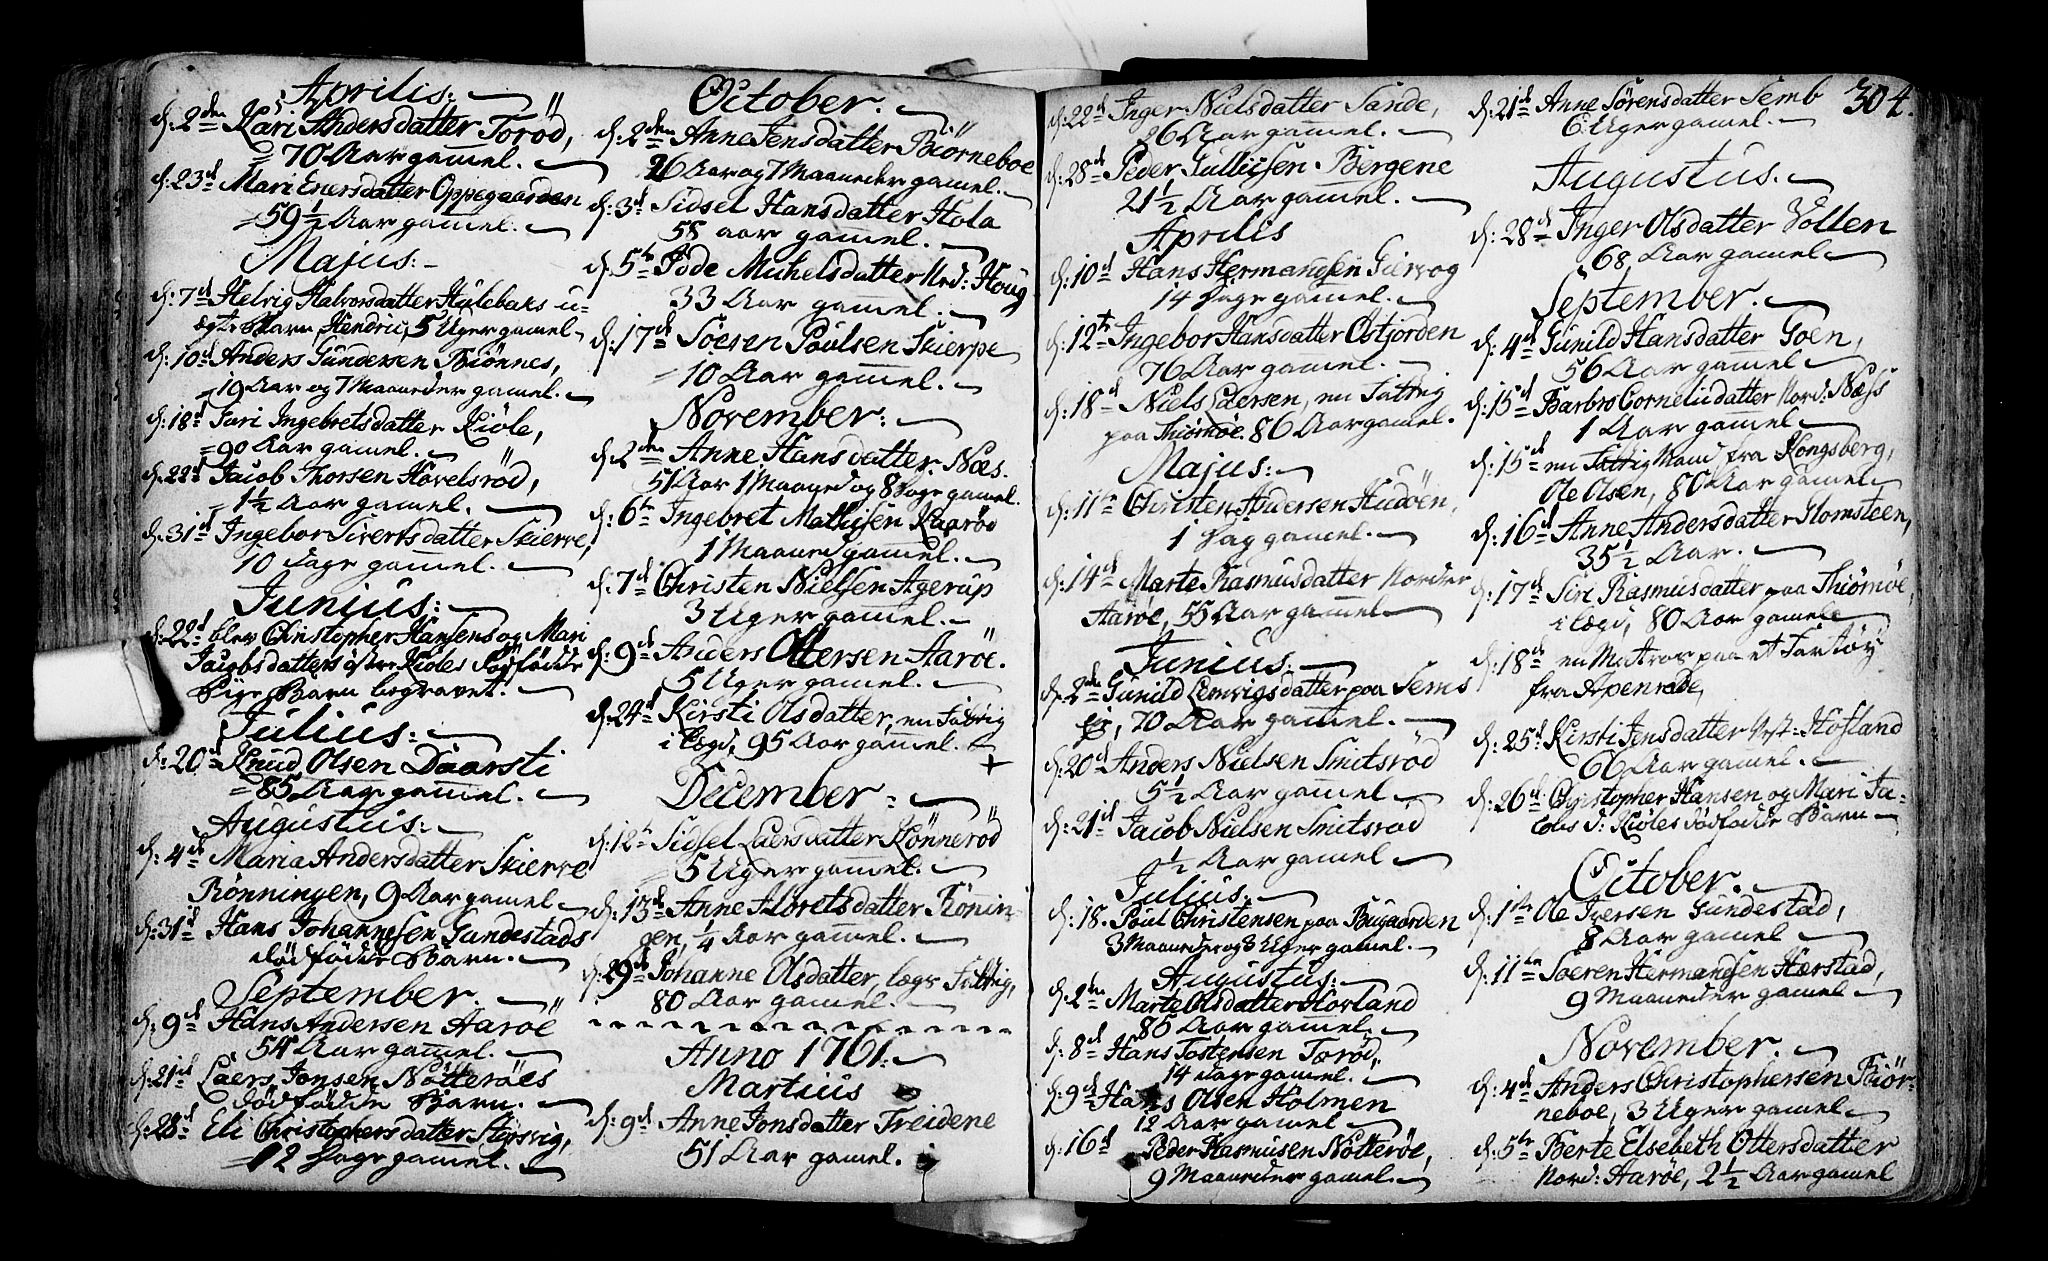 Aprilis.
d: 2den Kari Andersdatter Torød,
70 Aar gamel.
d: 23d Mari Enersdatter Oppegaarden
59½ Aar gamel.
Majus:
d: 7d Helvig Halvorsdatter Hylebaks u-
ægte Barn, Hendric, 5 Uger gamel
d: 10d Anders Gundersen Biönnes,
19 Aar og 7 Maaneder gamel.
d: 18d Siri Ingebretsdatter Kiöle,
90 Aar gamel.
d: 22d Jacob Thorsen Hovelsröd,
1½ Aar gamel.
d: 31d Ingebor Sivertsdatter Skierve,
10 dage gamel.
Junius:
d: 22d blev Christopher Hansens og Mari
Jacobsdatters östre Kioles dödfödde
Pige Barn begravet.
Julius:
d: 20d Knud Olsen Daarsti
85 Aar gamel.
Augustus:
d: 4d Maria Andersdatter Skierve
Rönningen, 9 Aar gamel
d: 31d Hans Johannesen Gundestads
dödfödde Barn.
September.
d: 9d Hans Andersen Aaröe
54 Aar gamel.
d: 21d Laers Jonsen Nötteröes
dödfödde Barn.
d: 28d Eli Christophersdatter Stiösvig,
12 Dage gamel.
October.
d: 2den Anne Jensdatter Biörneboe
26 Aar og 7 Maaneder gamel.
d: 3d Sidsel Hansdatter Hola
58 aar gamel.
d: 5te Jode Michelsdatter Ned: Houg
33 Aar gamel.
d: 17d Soeren Poulsen Skierpe
10 Aar gamel.
November:
d: 2den Anne Hansdatter Næs.
51 Aar 1 Maaned og 8 Dage gamel.
d: 6te Ingebret Mathisen Kaaröd
1 Maaned gamel.
d: 7d Christen Nielsen Agerup
3 Uger gamel.
d: 9d Anders Ottersen Aaröe.
5 Uger gamel.
d: 24d Kirsti Olsdatter, en Fattig
i lægd, 95 Aar gamel.
December:
d: 12te Sidsel Laersdatter Rönneröd
5 Uger gamel.
d: 13d Anne Floretsdatter Rönin-
gen, ¼ Aar gamel.
d: 29d Johanne Olsdatter, lægs Fattig,
80 Aar gamel.
Anno 1761.
Martius
d: 9d Anne Jonsdatter Treidene
51 Aar gamel.
d: 22d Inger Nielsdatter Sande,
26 Aar gamel.
d: 28d Peder Gullicsen Bergene
21½ Aar gamel.
Aprilis
d: 10d Hans Hermansen Giervog
14 Dage gamel.
d: 12te Ingebor Hansdatter Østjorden
76 Aar gamel.
d: 18d Niels Laersen, en Fattig
paa Thiömöe. 86 Aar gamel.
Majus:
d: 11te Christen Andersen Hudöen,
1 Dag gamel.
d: 14d Marte Rasmusdatter Norder
Aaröe, 55 Aar gamel
Junius:
d: 2den Gunild Lemvigsdatter paa Sems
Ej, 70 Aar gamel.
d: 20d Anders Nielsen Smitsröd
5½ Aar gamel
d: 21d Jacob Nielsen Smitsröd
½ Aar gamel
Julius.
d: 18. Poul Christensen paa Bugaarden
3 Maaneder og 3 Uger gamel.
Augustus:
d: 2den Marte Olsdatter Hovland
85 Aar gamel.
d: 8d Hans Tostensen Toröd,
14 dage gamel.
d: 9d Hans Olsen Holmen
12 Aar gamel
d: 16d Peder Rasmusen Nötteröe,
9 Maaneder gamel.
304.
d: 21d Anne Sörensdatter Semb
6 Uger gamel.
Augustus.
d: 28d Inger Olsdatter Volden
68 Aar gamel
September.
d: 4d Gunild Hansdatter Goen,
56 Aar gamel
d: 15d Barbro Cornelisdatter Nord: Næss
1 Aar gamel
d: 15d en Fattig Mand fra Kongsberg,
Ole Olsen, 80 Aar gamel
d: 16d Anne Andersdatter Glomsteen,
35½ Aar.
d: 17d Siri Rasmusdatter paa Thiömöe,
i lægd, 80 Aar gamel
d: 18d en Matros paa et Fartöy
fra Apenrade,
d: 25d Kirsti Jensdatter Vest: Hofland
66 Aar gamel.
d: 26d Christopher Hansen og Mari Ja-
cobs d: Kioles dödfödde Barn
October.
d: 1te Ole Iversen Gundestad,
8 Aar gamel
d: 11te Soeren Hermansen Hærstad,
9 Maaneder gamel
November.
d: 4d Anders Christophersen Biör-
neboe, 3 Uger gamel
d: 5te Berte Elsebeth Ottersdatter
Nord: Aaröe, 2½ Aar gamel